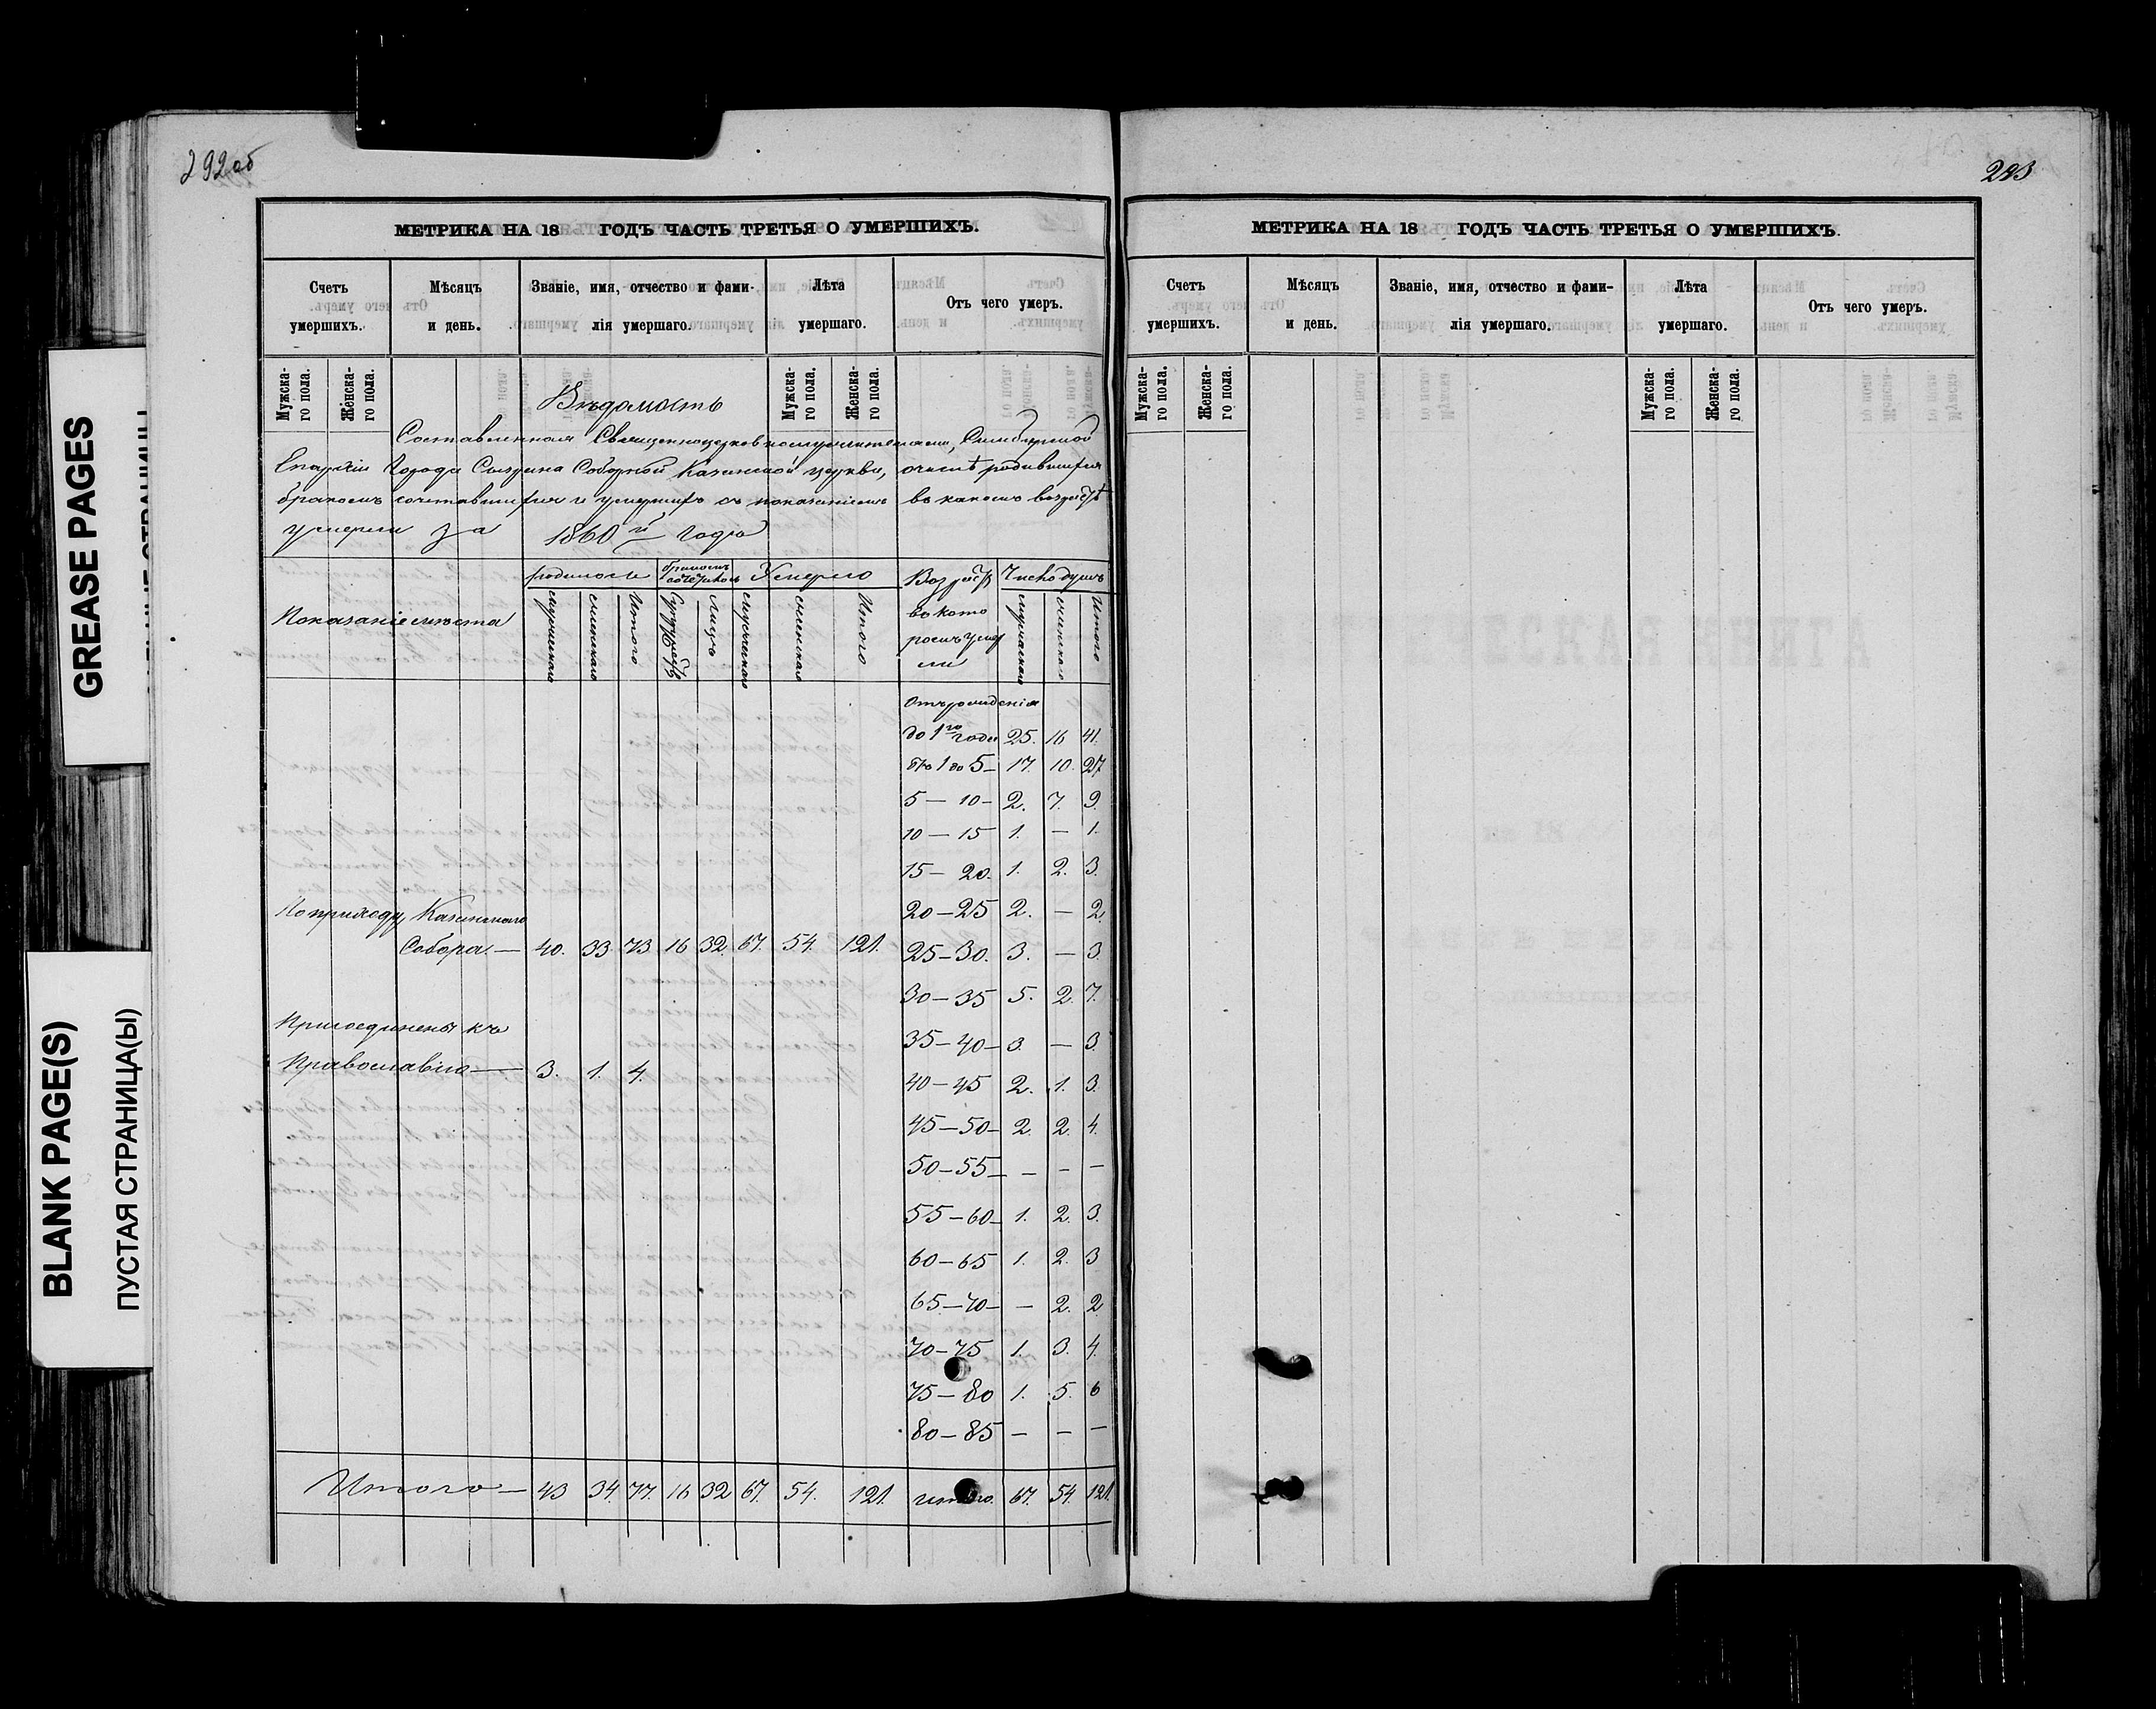 292 об
МЕТРИКА НА 18 ГОДЪ ЧАСТЬ ТРЕТЬЯ О УМЕРШИХЪ.
Счетъ умершихъ. Мѣсяцъ и день. Званіе, имя, отчество и фами- лія умершаго. Лѣта умершаго. Отъ чего умеръ.
Мужска- го пола. Женска- го пола. Мужска- го пола. Женска- го пола.
Вѣдомость
Составленная Священноцерковнослужителями, Симбирской
Епархіи Города Сызрана Соборной Казанской церкви, о числѣ родившихся
бракомъ сочетавшихся и умершихъ съ показаніемъ въ какомъ возрастѣ
умерли за 1860й годъ
Показаніе мѣста
родилось бракомъ сочеталось Умерло Возрастъ Число душъ
мужескаго женскаго Итого Супружествъ Лицъ мужескаго женскаго Итого
въ кото
ромъ умер
ли
мужескаго женскаго Итого
Отъ рожденія
до 1го года 25. 16 41.
Отъ 1 до 5 — 17. 10. 27
5 — 10 — 2. 7. 9.
10 — 15 1. — 1.
15 — 20. 1. 2. 3.
20 — 25 2. — 2.
25 — 30. 3. — 3.
30 — 35 5. 2. 7.
35 — 40 — 3. — 3.
40 — 45 2. 1. 3.
45 — 50 — 2. 2. 4.
50 — 55 — — — —
55 — 60 — 1. 2. 3.
60 — 65 1. 2. 3
65 — 70 — — 2. 2
70 — 75 1. 3. 4.
75 — 80 1. 5. 6
80 — 85 — — —
По приходу Казанскаго
Собора. — 40. 33. 73. 16 32. 67. 54. 121.
Присоединены къ
Православію — 3. 1. 4.
Итого — 43 34. 77. 16 32 67. 54. 121. итого. 67. 54. 121.
293
МЕТРИКА НА 18 ГОДЪ ЧАСТЬ ТРЕТЬЯ О УМЕРШИХЪ.
Счетъ умершихъ. Мѣсяцъ и день. Званіе, имя, отчество и фами- лія умершаго. Лѣта умершаго. Отъ чего умеръ.
Мужска- го пола. Женска- го пола. Мужска- го пола. Женска- го пола.
GREASE PAGES
BLANK PAGE(S)
ПУСТАЯ СТРАНИЦА(Ы)